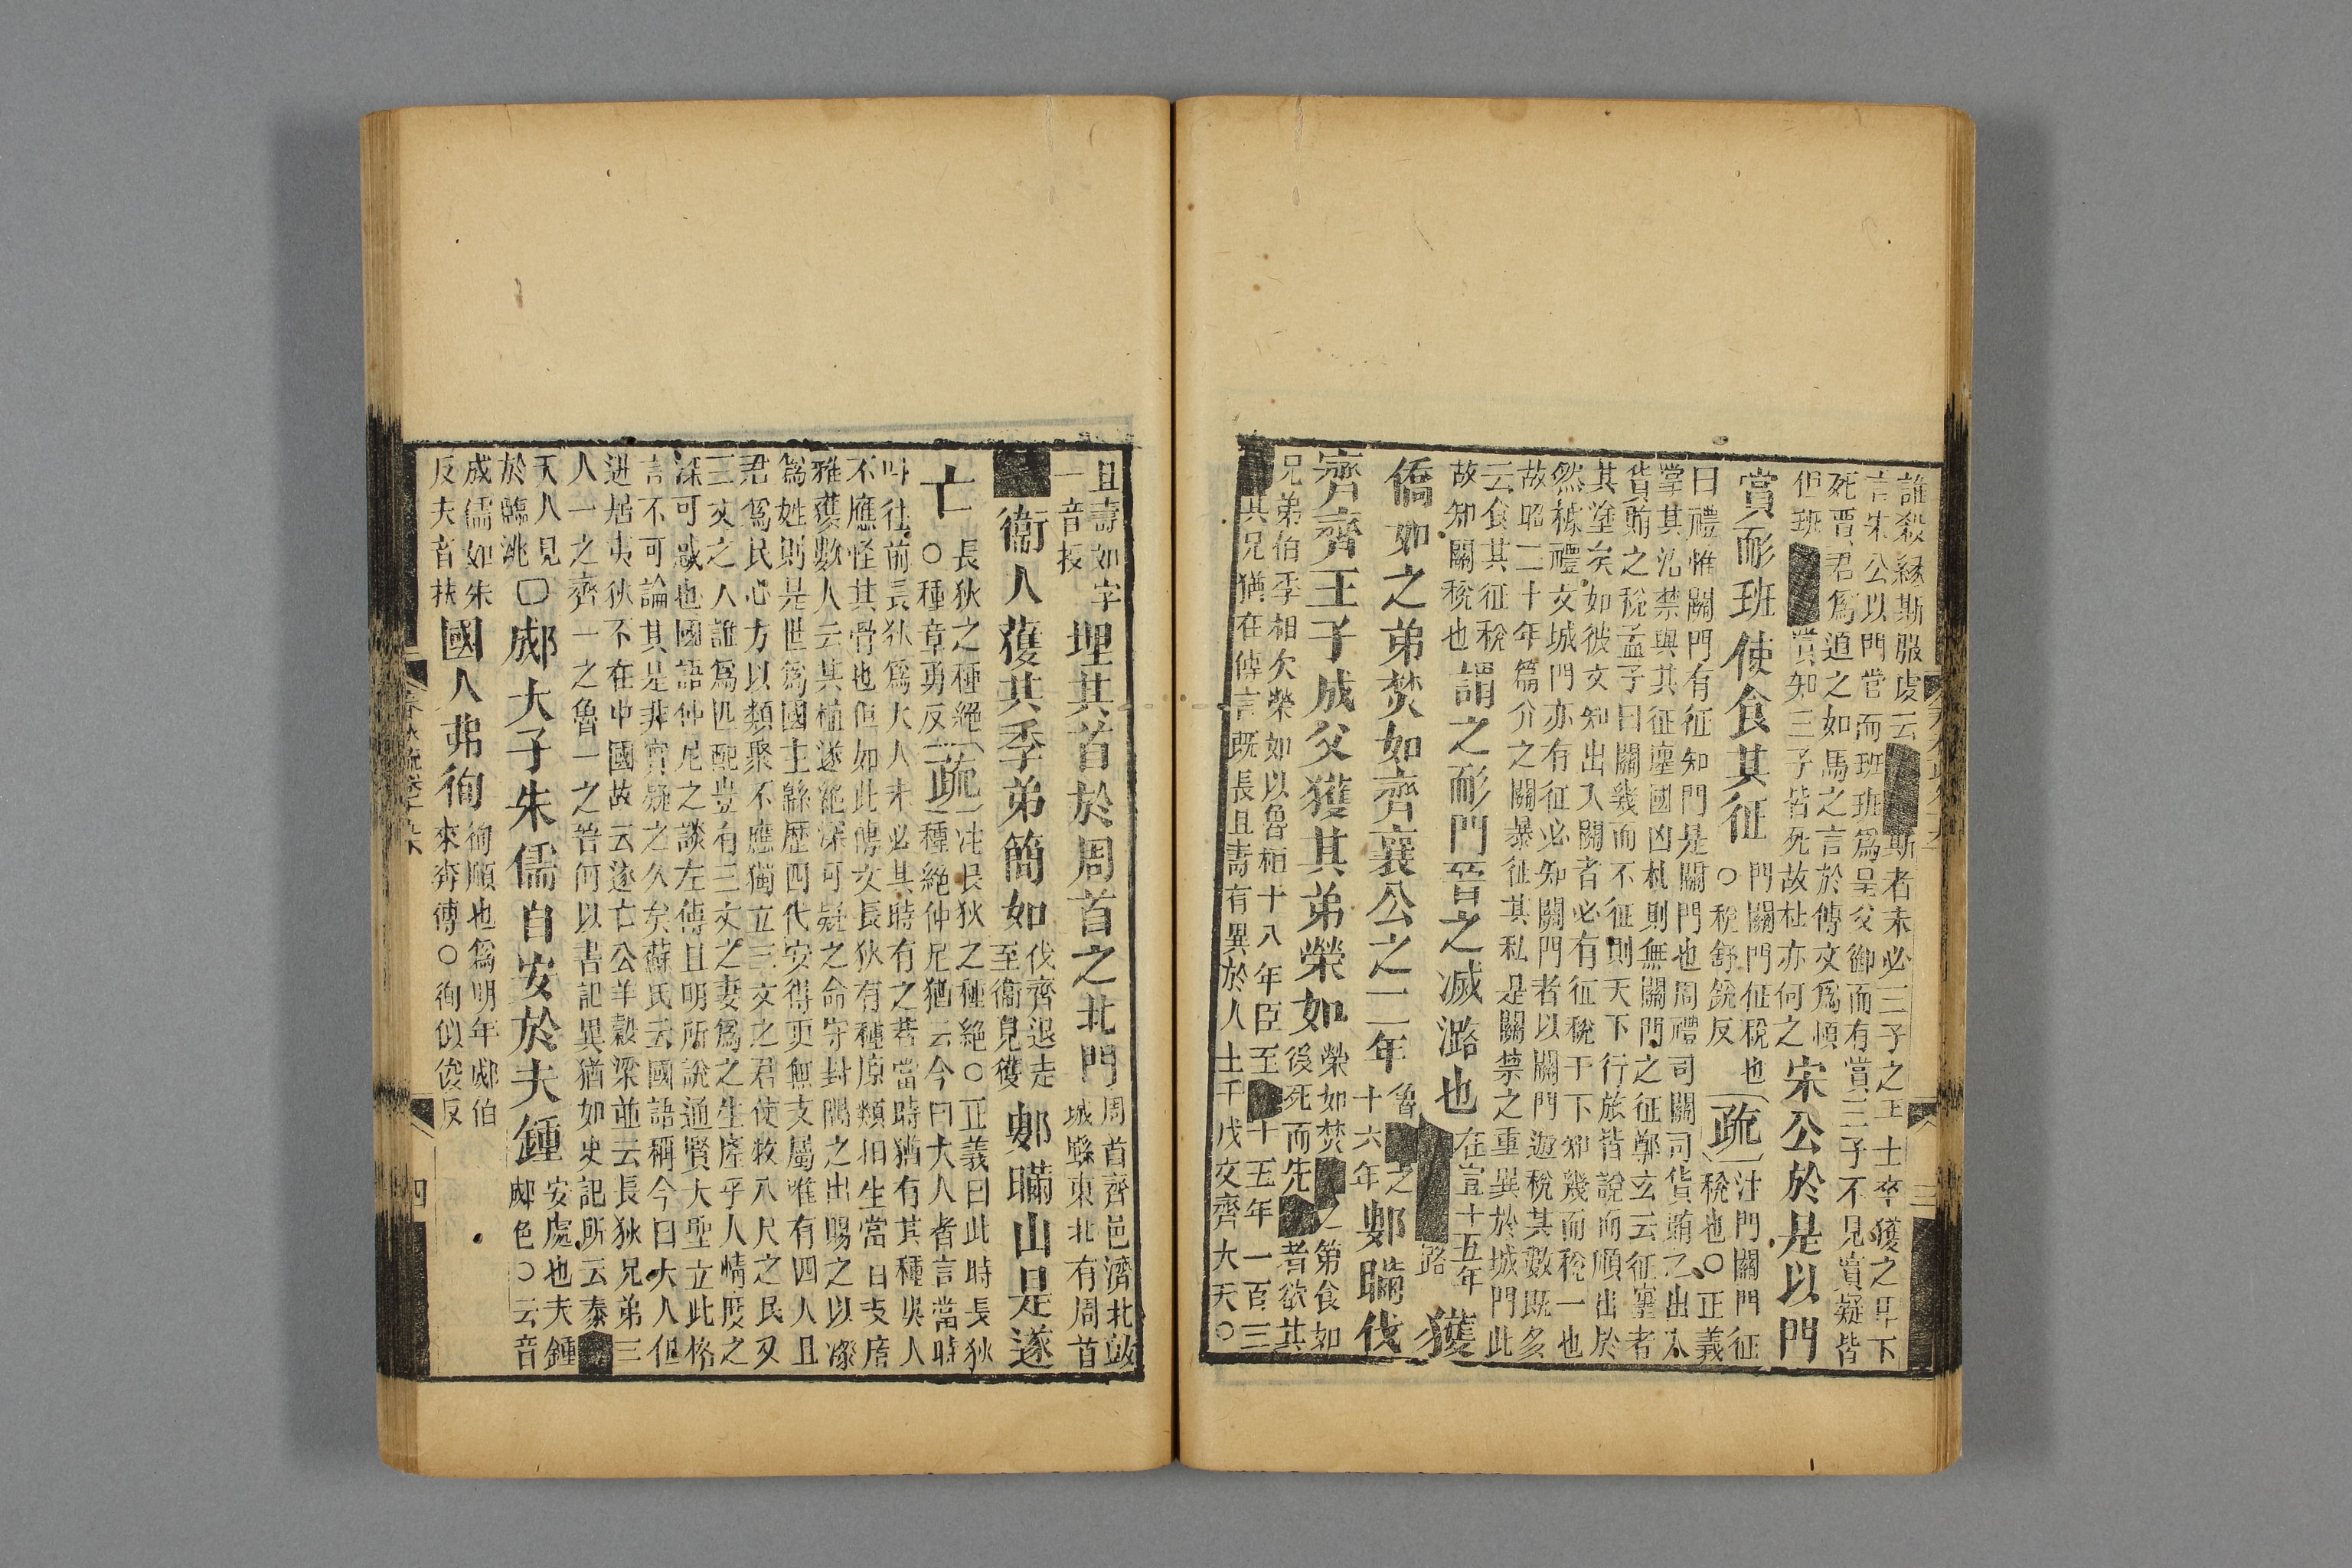 誰殺緣斯服虔云斯者未必三子之手士卒獲之耳下
言宋公以門賞而班班爲皇父御而有賞三子不見賞疑皆
死賈君爲近之如馬之言於傳文爲順
但班賞知三子皆死故杜亦何之
宋公於是以門
賞耏班使食其征
門關門征稅也
○稅舒銳反
疏
注門關門征
稅也○正義
曰禮惟關門有征知門是關門也周禮司關司貨賄之出入
掌其治禁與其征廛國凶札則無關門之征鄭玄云征廛者
貨賄之稅孟子曰關幾而不征則天下行旅皆說而願出於
其塗矣如彼文知出入關者必有征稅干下知幾而稅一也
然據禮文城門亦有征必知關門者以關門遊稅其數既多
故昭二十年篇介之關暴征其私是關禁之重異於城門此
云食其征稅
故知關稅也
謂之耏門晉之滅潞也
在宣十五年
路
獲
僑如之弟焚如齊襄公之二年
魯之
十六年
鄋瞞伐
齊齊王子成父獲其弟榮如
榮如焚之弟食如
後死而先者欲其
兄弟伯季相次榮如以魯桓十八年臣至十五年一百三
其兄猶在傳言既長且壽有異於人土千戊文齊大天○
且壽如字
一音授
埋其首於周首之北門
周首齊邑濟北敀
城縣東北有周首
衞人獲其季弟簡如
伐齊退走
至衞見獲
鄋瞞山是遂
亡
長狄之種絕
○種章勇反
疏
注長狄之種絕○正義曰此時長狄
種絕仲尼猶云今曰大人者言當時
呌往前長狄爲大人未必其時有之若當時猶有其種吳人
不應怪其骨也但如此傳文長狄有種原類相生當日支庶
雖獲數人云其種遂絕深可疑之命守封隅之山賜之以漆
爲姓則是世爲國主緜歷四代安得更無支屬唯有四人且
君爲民心方以類聚不應獨立三丈之君使牧八尺之民又
三丈之人誰爲匹配豈有三丈之妻爲之生產乎人情度之
深可惑也國語仲尼之談左傳且明所說通賢大聖立此格
言不可論其是非實疑之久矣蘇氏云國語稱今曰大人但
迸居夷狄不在中國故云遂亡公羊穀梁並云長狄兄弟三
人一之齊一之魯一之晉何以書記異猶如史記所云秦
天人見
於臨洮
郕大子朱儒自安於夫鍾
安處也夫鍾
郕邑○云音
成儒如朱
反夫音扶
國人弗徇
徇順也爲明年郕伯
來奔傳○徇似俊反
四
三